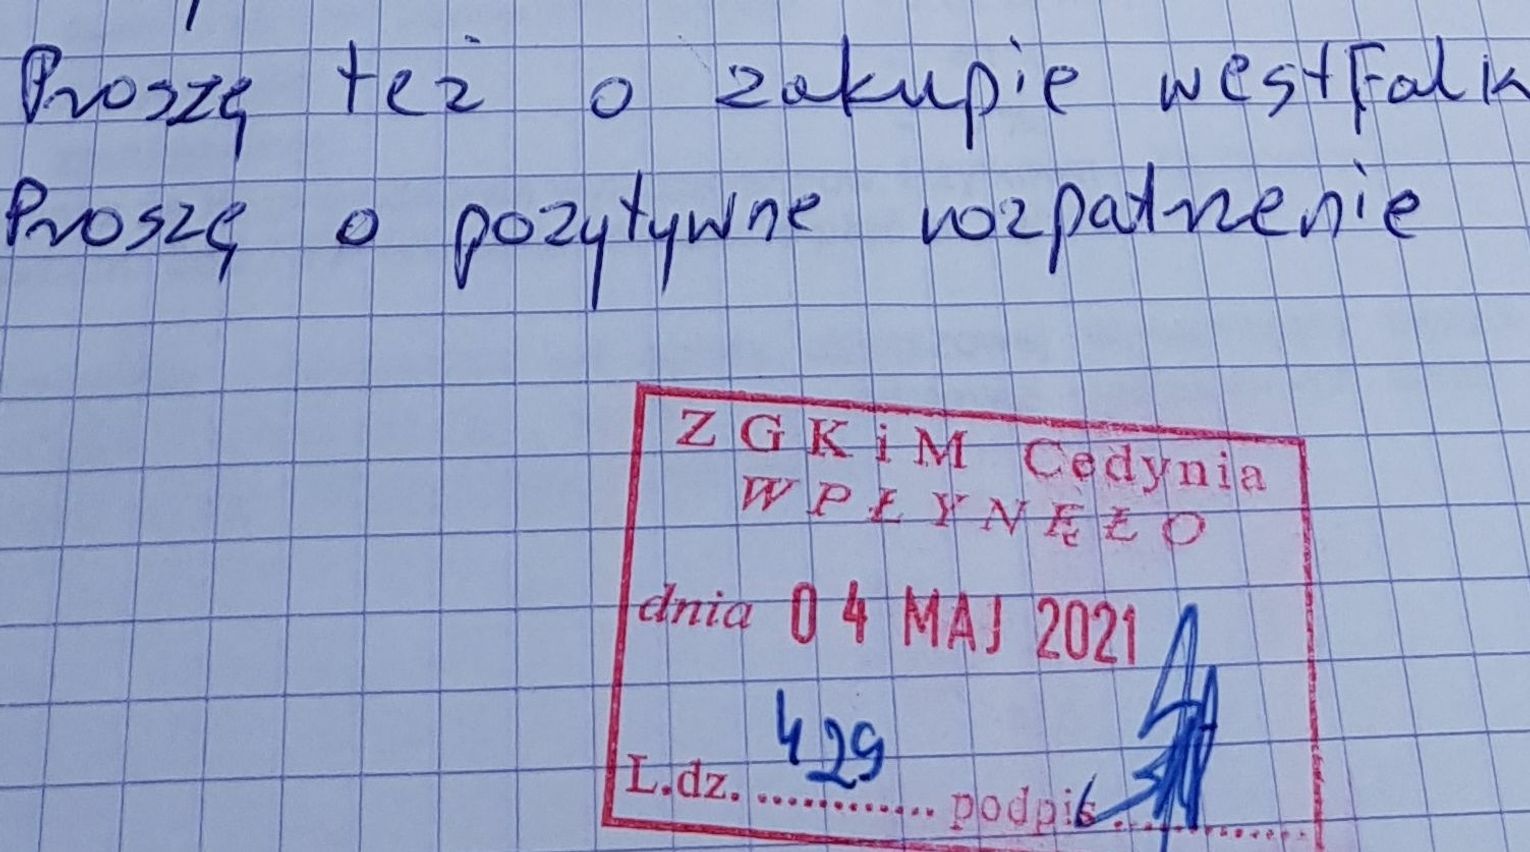 Proszę też o zakupie westFalk
Proszę o pozytywne rozpatrzenie
ZGKiM Cedynia
WPŁYNĘŁO
dnia 04 MAJ 2021
L.dz. 429 podpis